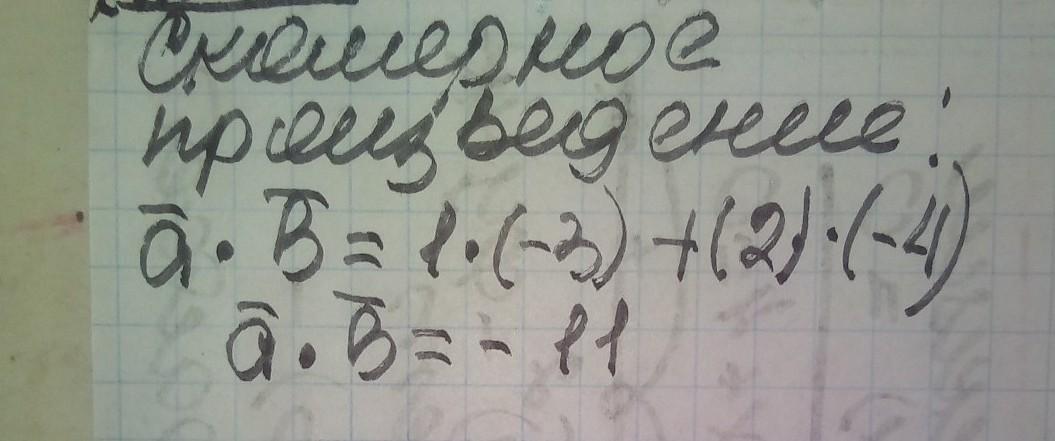 Скалярное
произведение:
ā · b̄ = 1·(-3) + (2)·(-4)
ā · b̄ = - 11